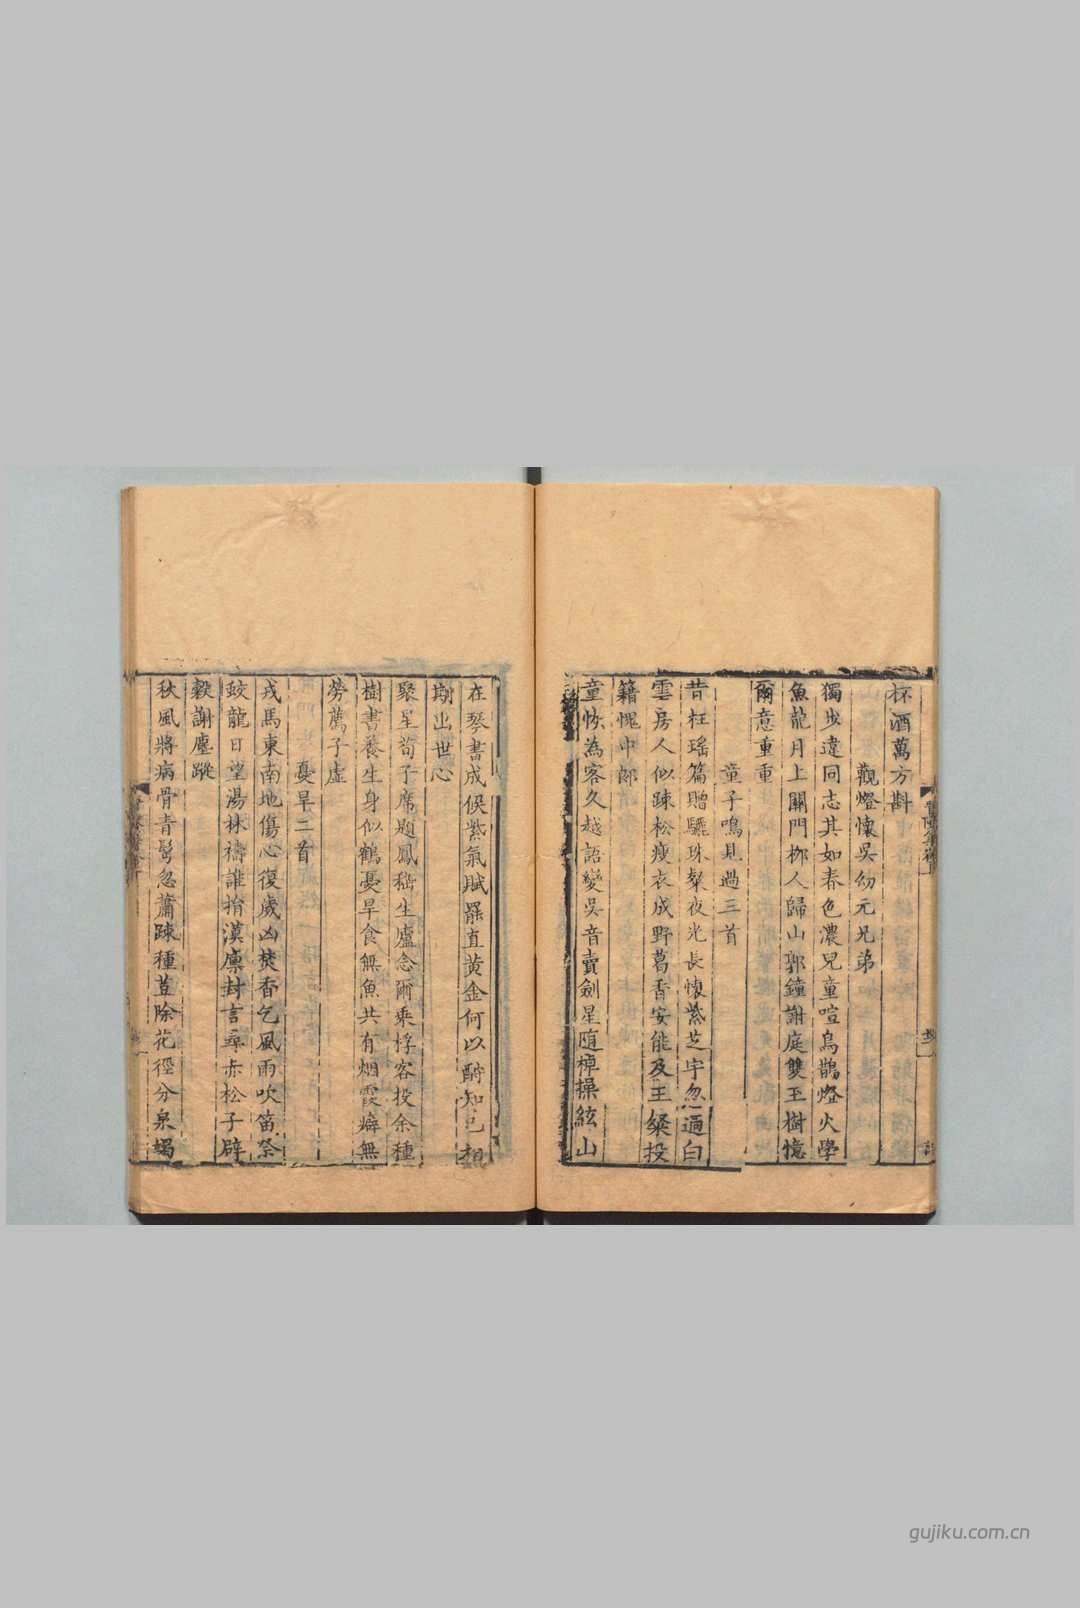 杯酒萬方斟
觀燈懷吳幼元兄弟
獨步違同志其如春色濃兒童喧烏鵲燈火學
魚龍月上關門柳人歸山郭鐘謝庭雙玉樹憶
爾意重重
童子鳴見過三首
昔枉瑤篇贈驪珠粲夜光長懷紫芝宇忽過白
雲房人似踈松瘦衣成野葛香安能及王粲投
籍愧中郎
童恢為客久越語變吳音賣劍星随棹操絃山
在琴書成候紫氣賦罷直黃金何以酧知己相
期出世心
聚星荀子席題鳳嵇生廬念爾乘桴客投余種
樹書養生身似鶴憂旱食無魚共有烟霞癖無
勞薦子虛
憂旱二首
戎馬東南地傷心復歲凶焚香乞風雨吹笛祭
蛟龍日望湯林禱誰捐漢廪封言尋赤松子辟
穀謝塵蹤
秋風將病骨青髩忽蕭踈種荳除花徑分泉
gujiku.com.cn